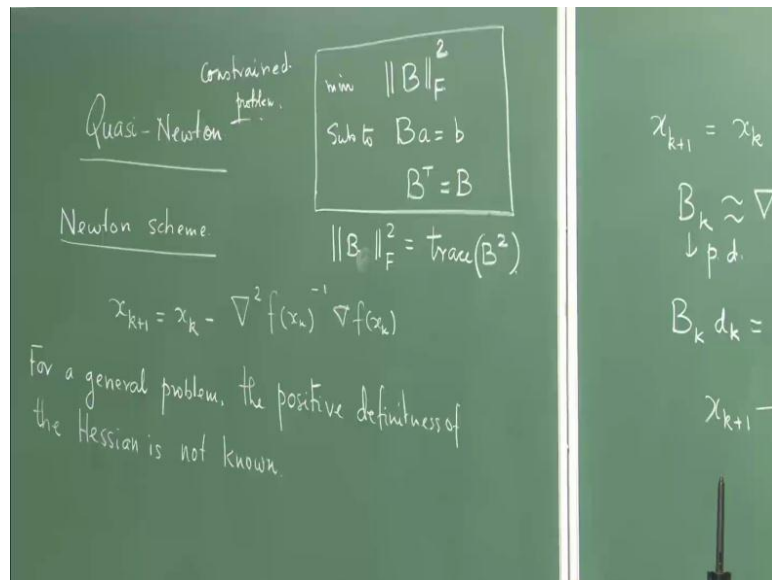 Constrained
problem.
Quasi-Newton
min ‖B‖_F^2
Sub to Ba = b
B^T = B
‖B‖_F^2 = trace(B^2)
Newton scheme.
x_{k+1} = x_k - ∇^2 f(x_k)^{-1} ∇f(x_k)
For a general problem, the positive definitness of
the Hessian is not known.
x_{k+1} = x_k
B_k ≈ ∇
↓ p.d.
B_k d_k =
x_{k+1} -